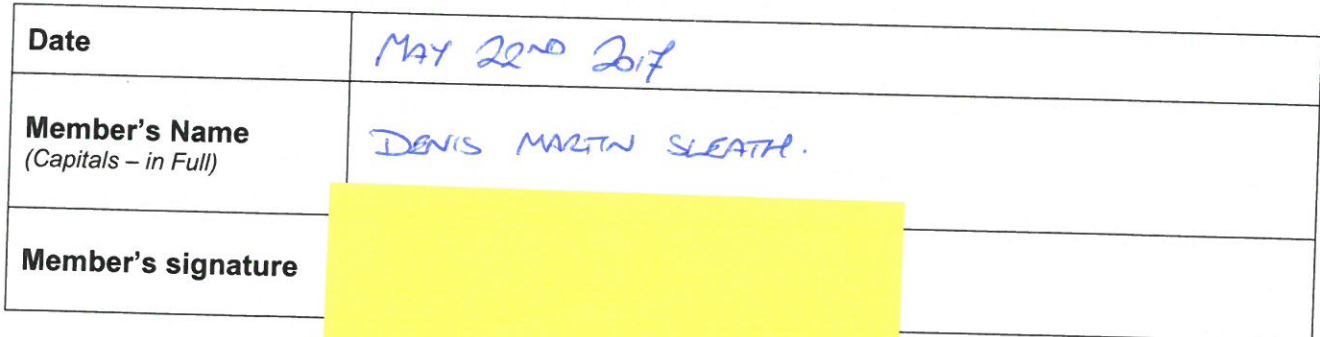 Date
MAY 22ND 2017
Member's Name
(Capitals – in Full)
DENIS MARTIN SLEATH.
Member's signature